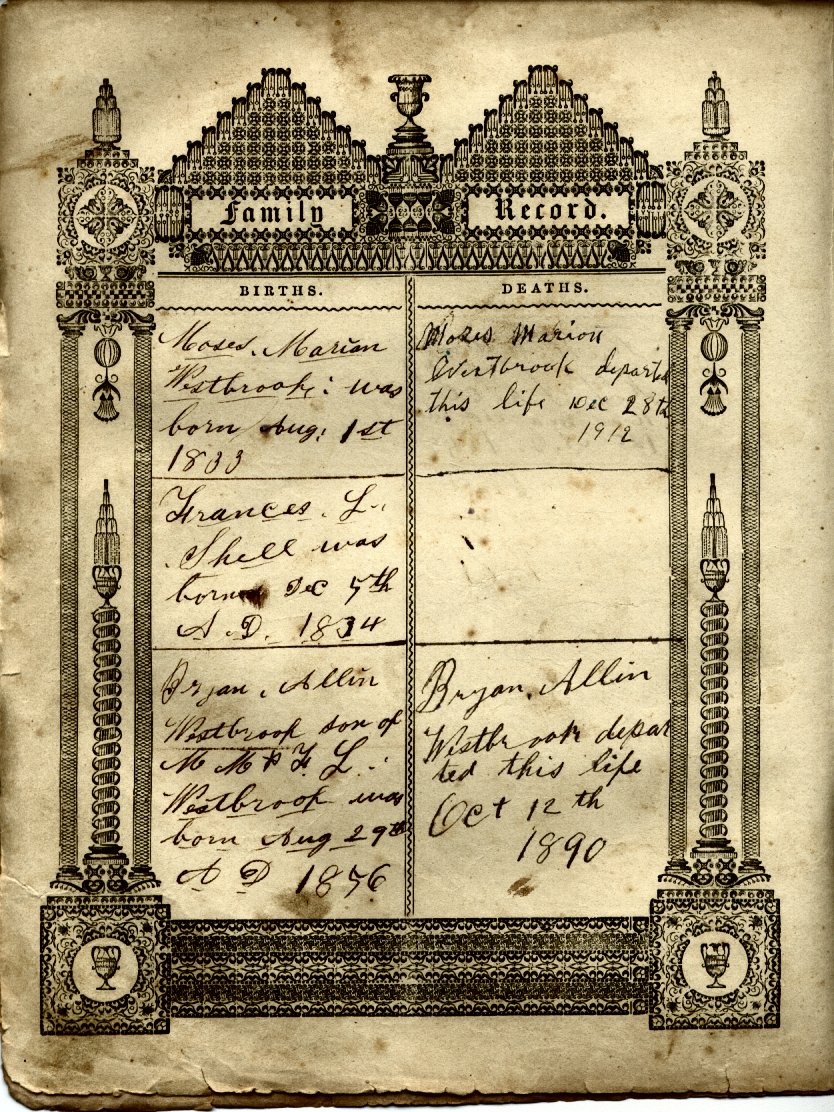 Family Record.
BIRTHS.
Moses. Marion
Westbrook: was
born Aug. 1st
1833
Frances. L.
Shell was
born Dec 5th
A. D. 1834
Bryan. Allin
Westbrook son of
M M & F. L.
Westbrook was
born Aug 29th
A D 1856
DEATHS.
Moses Marion
Westbrook departed
this life Dec 28th
1912
Bryan. Allin
Westbrook depar
ted this life
Oct 12 th
1890